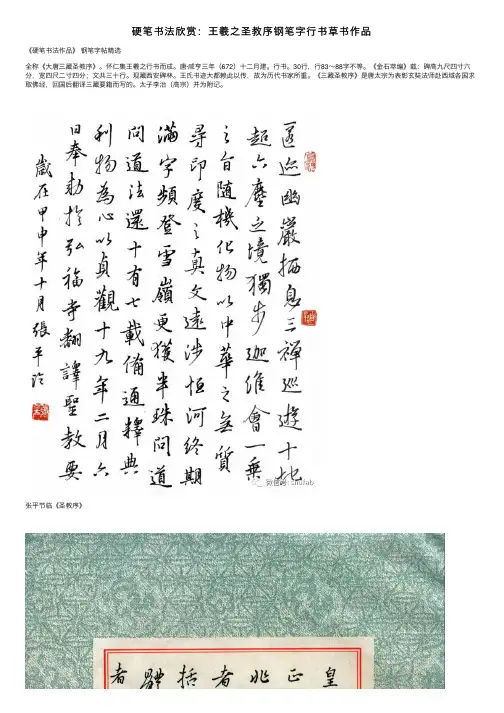 硬笔书法欣赏：王羲之圣教序钢笔字行书草书作品
《硬笔书法作品》 钢笔字帖精选
全称《大唐三藏圣教序》。怀仁集王羲之行书而成。唐·咸亨三年（672）十二月建。行书。30行，行83～88字不等。《金石萃编》载：碑高九尺四寸六
分，宽四尺二寸四分；文共三十行。现藏西安碑林。王氏书迹大都赖此以传，故为历代书家所重。《三藏圣教序》是唐太宗为表彰玄奘法师赴西域各国求
取佛经，回国后翻译三藏要籍而写的。太子李治（高宗）并为附记。
匿迹幽巖栖息三禪巡遊十地
超六塵之境獨步迦維會一乗
之旨随機化物以中華之無質
尋印度之真文遠涉恒河終期
滿字頻登雪嶺更獲半珠問道
問道法還十有七載備通釋典
利物為心以貞觀十九年二月六
日奉勅於弘福寺翻譯聖教要
歲在甲申年十月張平临
张平节临《圣教序》
皇
正
兆
者
括
體
者